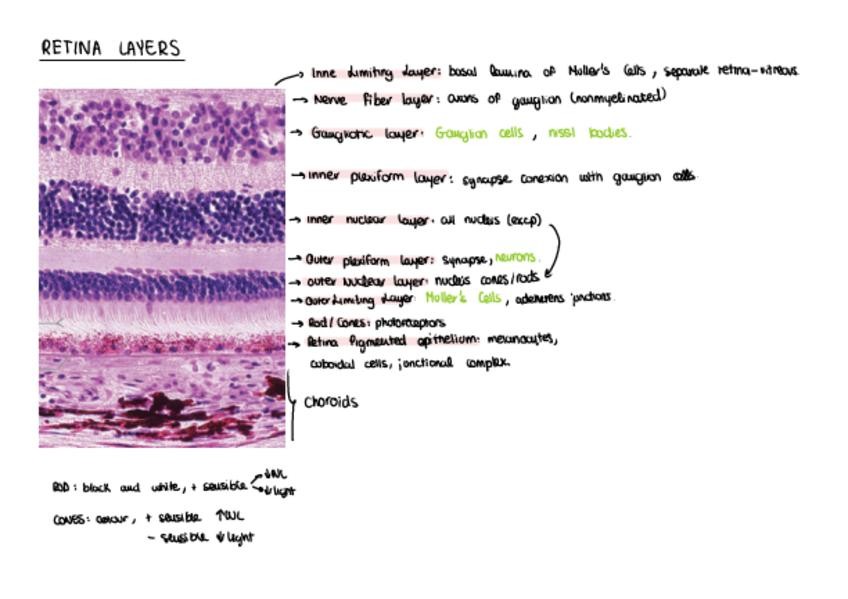 RETINA LAYERS
→ Inne Limiting Layer: basal lamina of Muller's Cells, separate retina-vitreous.
→ Nerve Fiber layer: axons of ganglion (nonmyelinated)
→ Ganglionic layer: Ganglion cells, nissl bodies.
→ Inner plexiform layer: synapse conexion with ganglion cells.
→ Inner nuclear layer: all nucleus (excp)
→ Outer plexiform layer: synapse, neurons.
→ outer Nuclear layer: nucleis cones/rods
→ Outer Limiting Layer: Muller's Cells, adherens junctions.
→ Rod/Cones: photoreceptors
→ Retina Pigmented epithelium: melanocytes,
cuboidal cells, jonctional complex.
Choroids
ROD: black and white, + sensible ↓WL
↓light
CONES: colour, + sensible ↑WL
- sensible ↓light